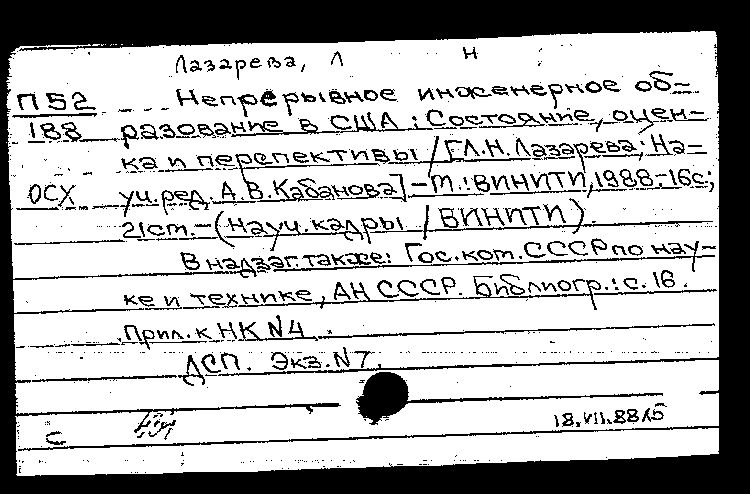 Лазарева, Л Н
П52 Непрерывное инженерное об=
188 разование в США: Состояние, оцен-
ка и перспективы / [Л.Н. Лазарева; На-
ОСХ уч. ред. А.В. Кабанова] - М.: ВИНИТИ, 1988.-16с;
21см. - (Науч. кадры / ВИНИТИ).
В надзаг. также: Гос. ком. СССР по нау-
ке и технике, АН СССР. Библиогр.: с. 16.
Прил. к НК N4.
ДСП. Экз. N7.
с 18.VII.88